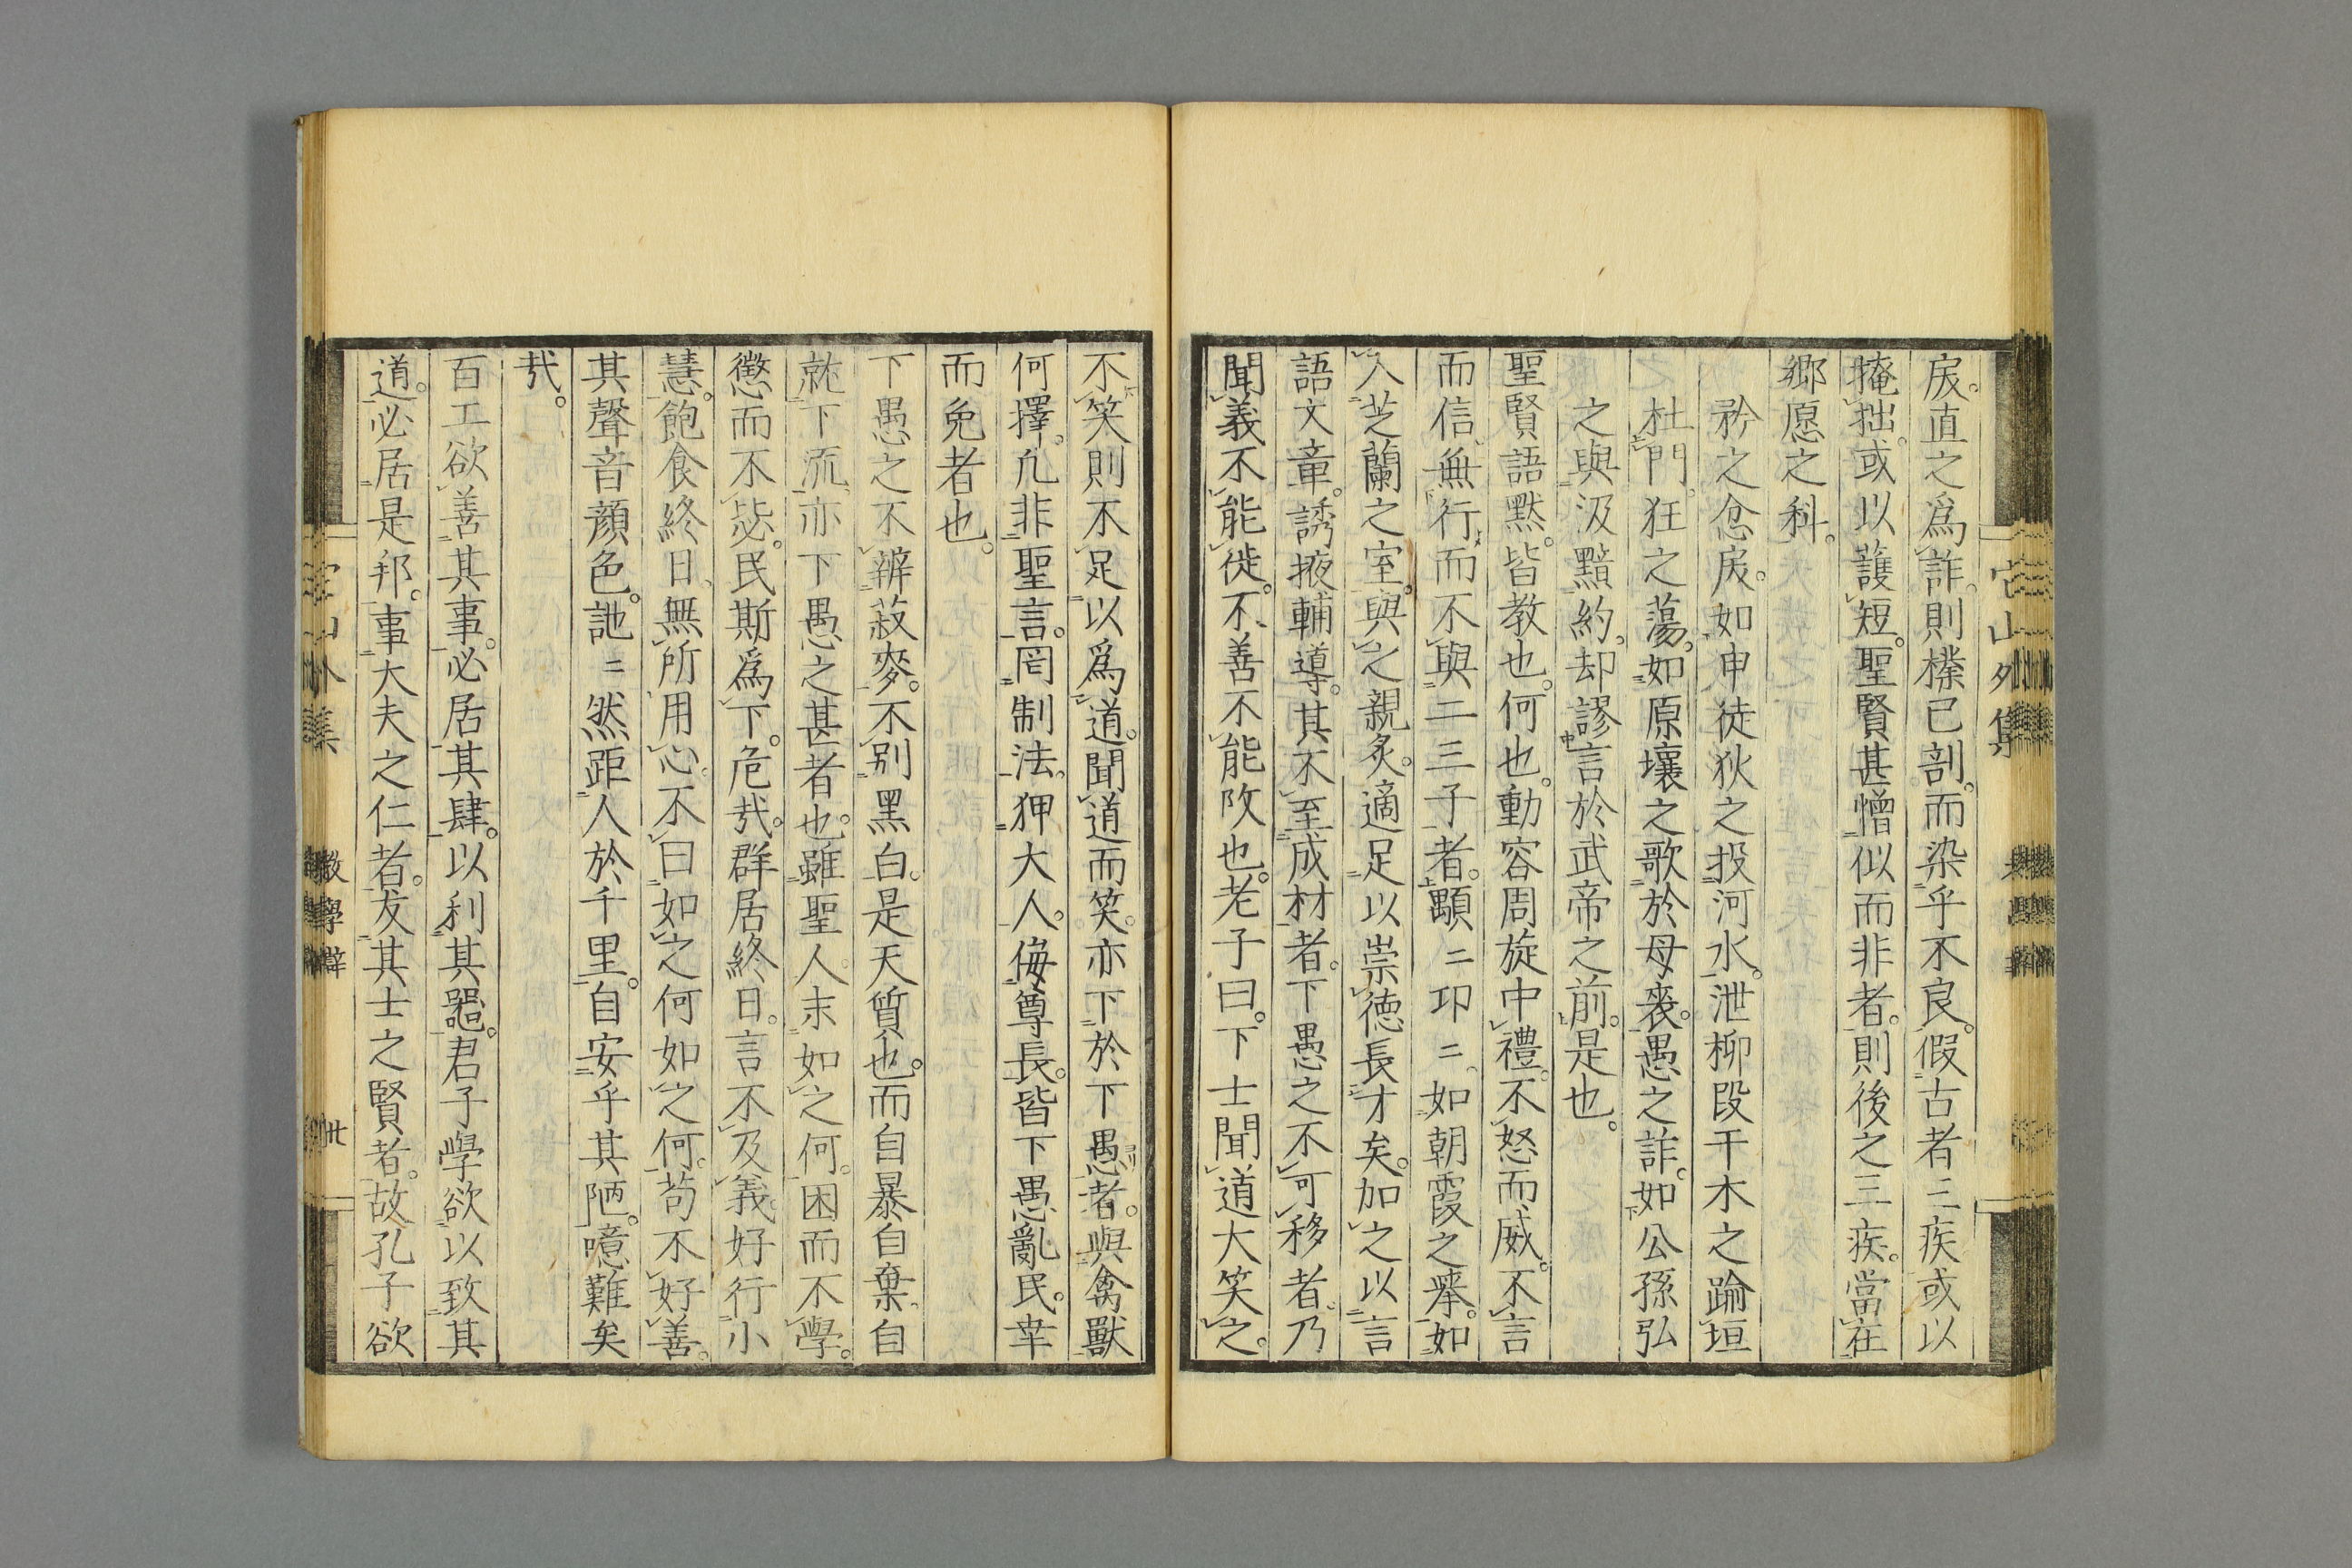 戻。直之爲詐。則樸已剖。而染乎不良。假古者三疾或以
掩拙。或以護短。聖賢甚憎似而非者。則後之三疾。當在
鄉愿之科。
矜之忿戻。如申徒狄之投河水。泄柳段干木之踰垣
杜門。狂之蕩。如原壤之歌於母喪。愚之詐。如公孫弘
之與汲黯約。却謬言於武帝之前。是也。
聖賢語默。皆教也。何也。動容周旋中禮。不怒而威。不言
而信。無行而不與二三子者。顒〻卬〻。如朝霞之擧。如
入芝蘭之室。與之親炙。適足以崇德長才矣。加之以言
語文章。誘掖輔導。其不至成材者。下愚之不可移者。乃
聞義不能徙。不善不能改也。老子曰。下士聞道大笑之。
不笑則不足以爲道。聞道而笑。亦下於下愚者。與禽獸
何擇。凢非聖言。罔制法。狎大人。侮尊長。皆下愚亂民。幸
而免者也。
下愚之不辨菽麥。不別黑白。是天質也。而自暴自棄。自
就下流。亦下愚之甚者也。雖聖人末如之何。困而不學。
懲而不毖。民斯爲下。危哉。群居終日。言不及義。好行小
慧。飽食終日。無所用心。不曰如之何如之何。苟不好善。
其聲音顔色。訑〻然距人於千里。自安乎其陋。噫難矣
哉。
百工欲善其事。必居其肆。以利其器。君子學欲以致其
道。必居是邦。事大夫之仁者。友其士之賢者。故孔子欲
宅山外集
教學辯
丗